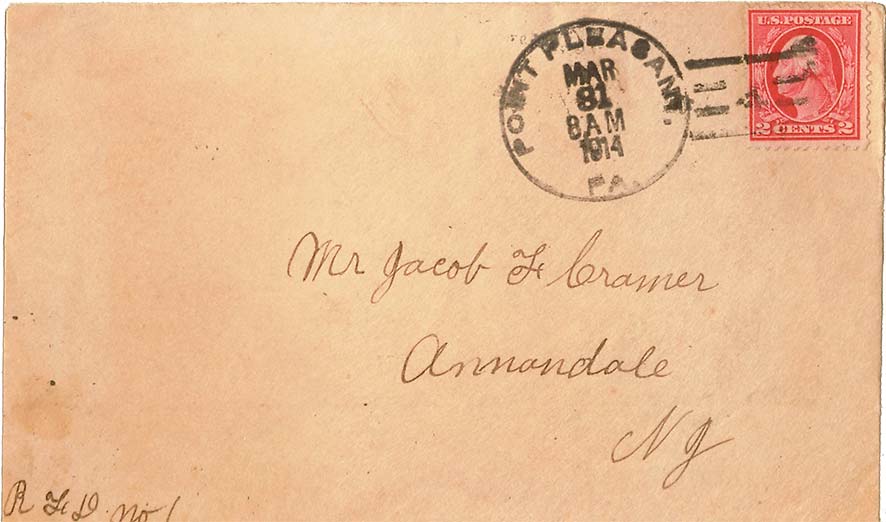 POINT PLEASANT.
MAR
31
8 AM
1914
PA.
U.S. POSTAGE
2 CENTS 2
Mr Jacob F Cramer
Annandale
NJ
R F D No 1